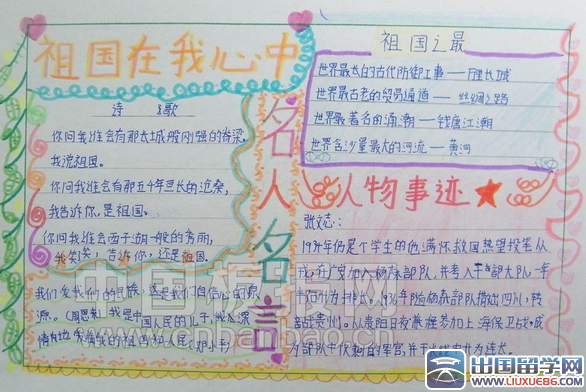 祖国在我心中
诗 歌
你问我谁会有那长城般刚强的脊梁,
我说祖国。
你问我谁会有那五千年迢长的沧桑,
我告诉你,是祖国。
你问我谁会西子湖一般的秀丽,
我笑笑,告诉你,还是祖国。
祖国之最
世界最长的古代防御工事——万里长城
世界最古老的贸易通道——丝绸之路
世界最著名的涌潮——钱唐江潮
世界含沙量最大的河流——黄河
名人名言
我们爱我们的民族,这是我们自信心的泉
源。(周恩来)我是中国人民的儿子,我深
情地爱着我的祖国和人民(邓小平)
人物事迹
张文志:
仍是个学生的他满怀救国热望投笔从
戎,在广安加入杨森部队,并考入
部队撤出四川,转
战贵州。从贵阳日夜兼程参加上海保卫战,成
为部队
中国板报网
出国留学网
WWW.LIUXUE86.COM